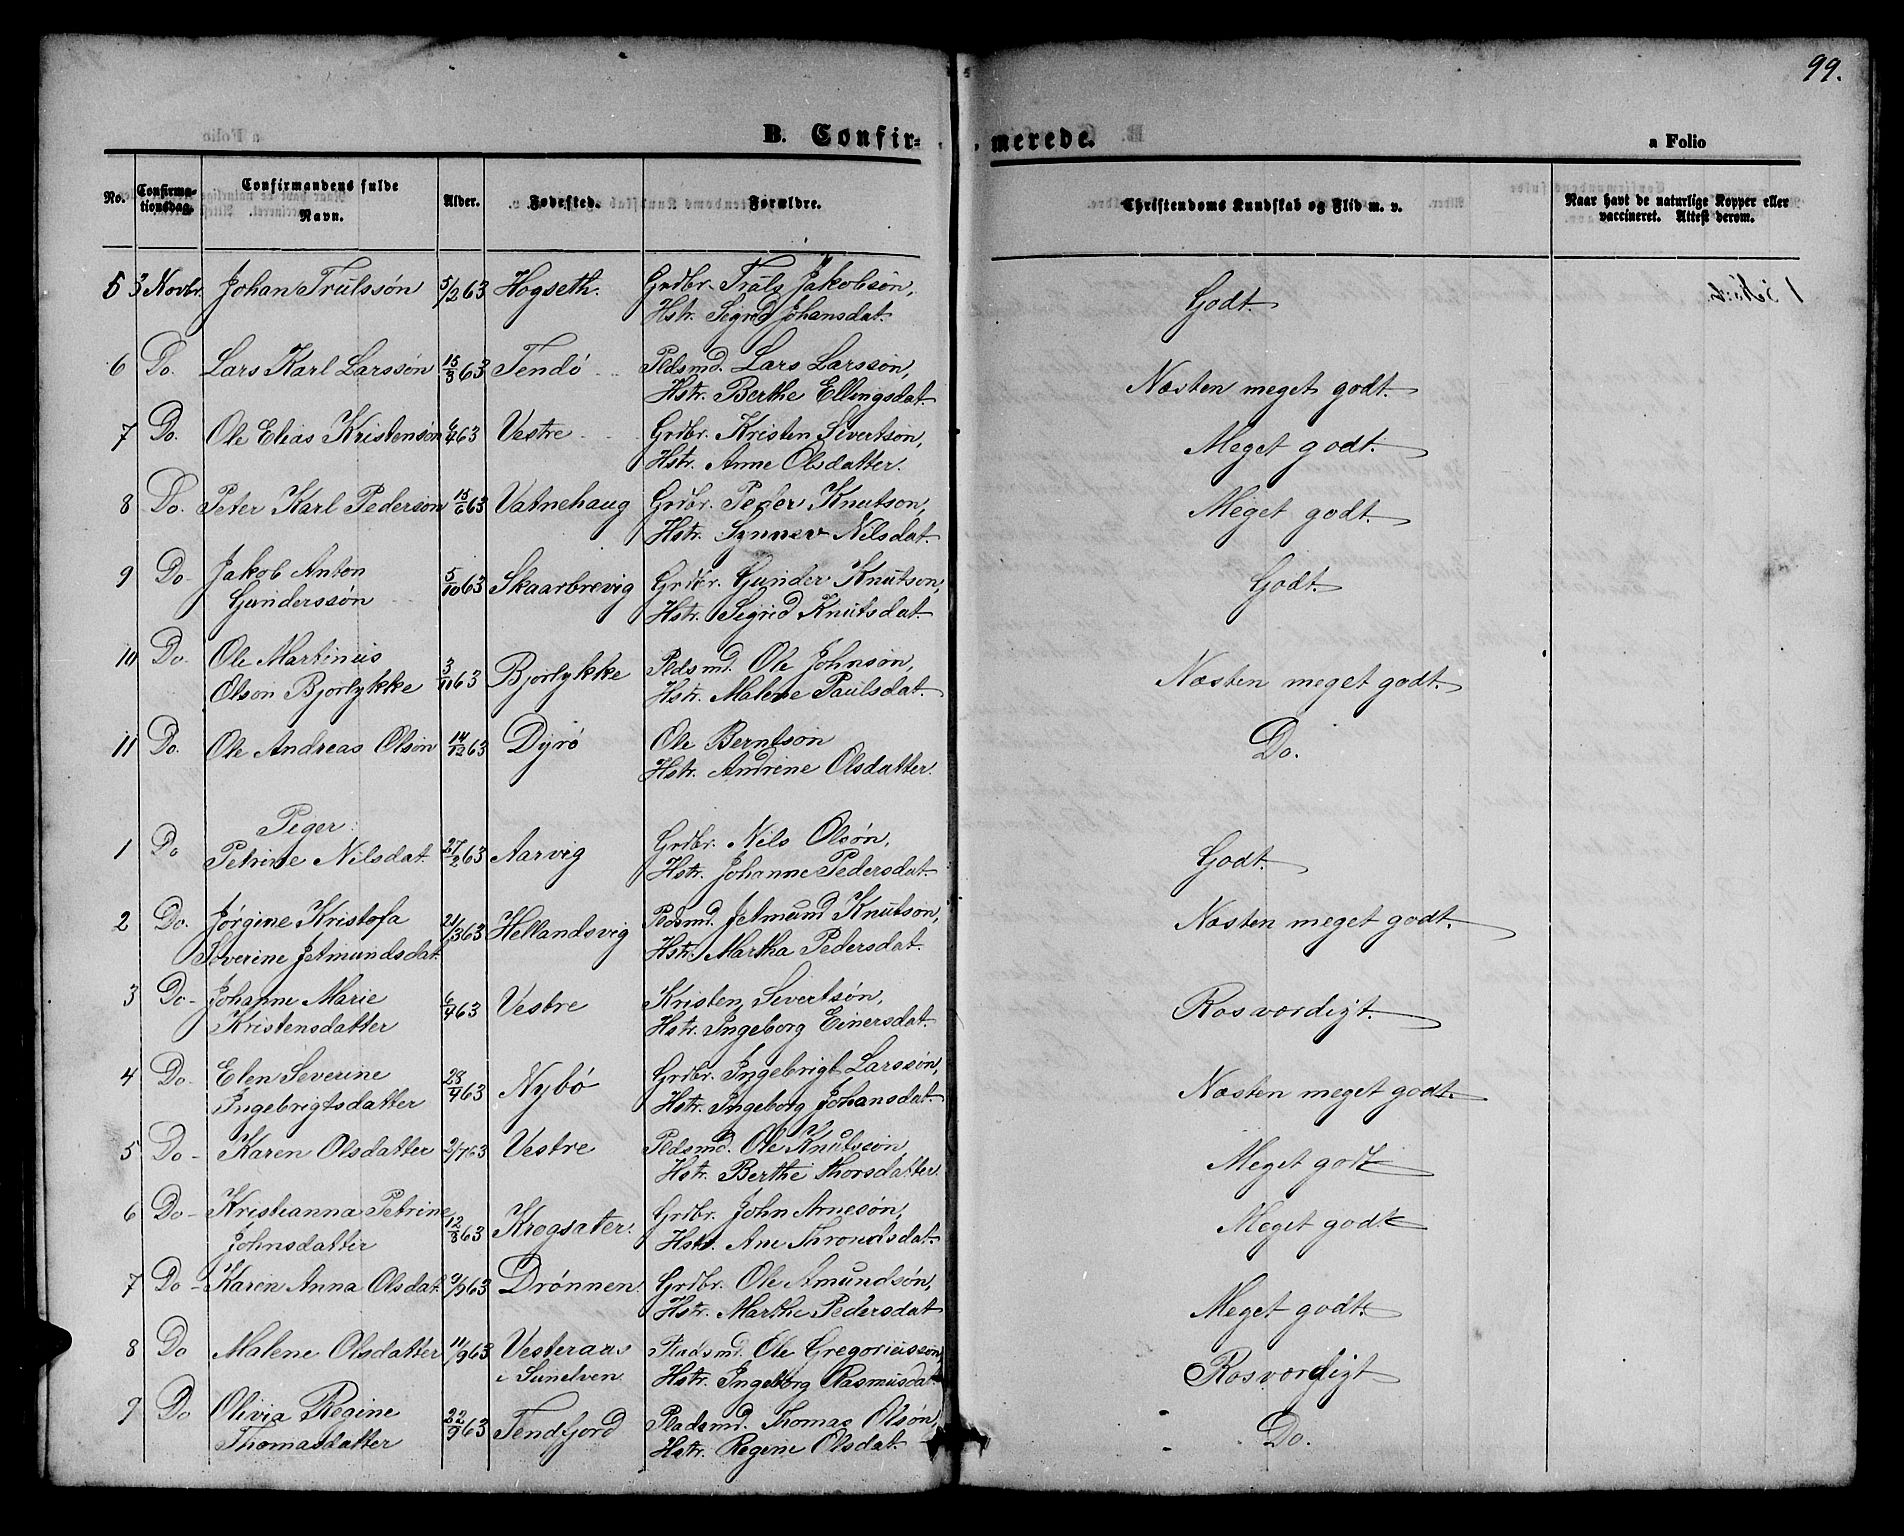 99.
B. Confir- merede.
a Folio
No. Confirma-tionsdag. Confirmandens fulde Navn. Alder. Fødested. Forældre. Christendoms Kundskab og Flid m. v. Naar havt de naturlige Kopper eller vaccineret. Attest derom.
5 3 Novbr. Johan Trulssøn 5/2 63 Hogseth. Grdbr. Truls Jakobsøn, Godt.
Hstr. Segrid Johansdat.
6 Do. Lars Karl Larssøn 15/3 63 Tendø Pldsmd. Lars Larssøn, Næsten meget godt.
Hstr. Berthe Ellingsdat.
7 Do. Ole Elias Kristensøn 6/4 63 Vestre Grdbr. Kristen Sivertsøn, Meget godt.
Hstr. Anne Olsdatter.
8 Do. Peter Karl Pedersøn 15/6 63 Vatnehaug Grdbr. Peder Knutson, Meget godt.
Hstr. Synnev Nilsdat.
9 Do. Jakob Anton 5/10 63 Skaarbrevig Grdbr. Gunder Knutson, Godt.
Gunderssøn Hstr. Segrid Knutsdat.
10 Do. Ole Martinus 3/11 63 Bjorlykke Pldsmd. Ole Johnsøn, Næsten meget godt.
Olson Bjorlykke Hstr. Malene Paulsdat.
11 Do. Ole Andreas Olsøn 14/12 63 Dyrø Ole Berntson Do.
Hstr. Andrine Olsdatter.
Peger
1 Do Petrine Nilsdat. 27/2 63 Aarvig Grdbr. Nils Olsøn, Godt.
Hstr. Johanne Pedersdat.
2 Do. Jørgine Kristofa 21/3 63 Hellandsvig Pldsmd. JAmund Knutson, Næsten meget godt.
Severine JAmundsdat. Hstr. Martha Pedersdat.
3 Do- Johanne Marie 6/4 63 Vestre Kristen Sivertsøn, Rosværdigt.
Kristensdatter Hstr. Ingeborg Einersdat.
4 Do- Elen Severine 28/4 63 Nybø Grdbr. Ingebrigt Larssøn, Næsten meget godt.
Ingebrigtsdatter Hstr. Ingeborg Johansdat.
5 Do- Karen Olsdatter 2/7 63 Vestre Pldsmd. Ole Knutssøn, Meget godt
Hstr. Berthe Thorsdatter
6 Do- Kristianna Petrine 12/8 63 Krogsater. Grdbr. John Arnesøn, Meget godt
Johnsdatter Hstr. Ane Throndsdat.
7 Do- Karen Anna Olsdat. /9 63 Drønnen. Grdbr. Ole Amundsøn, Meget godt
Hstr. Marthe Pedersdat
8 Do Malene Olsdatter 11/9 63 Vesteraas Pladsmd. Ole Gregoriusson, Rosværdigt
i Sunelven Hstr. Ingeborg Rasmusdat.
9 Do Olivia Regine 22/9 63 Tendfjord Pladsmd. Thomas Olsøn, Do.
Thomasdatter Hstr. Regine Olsdat.